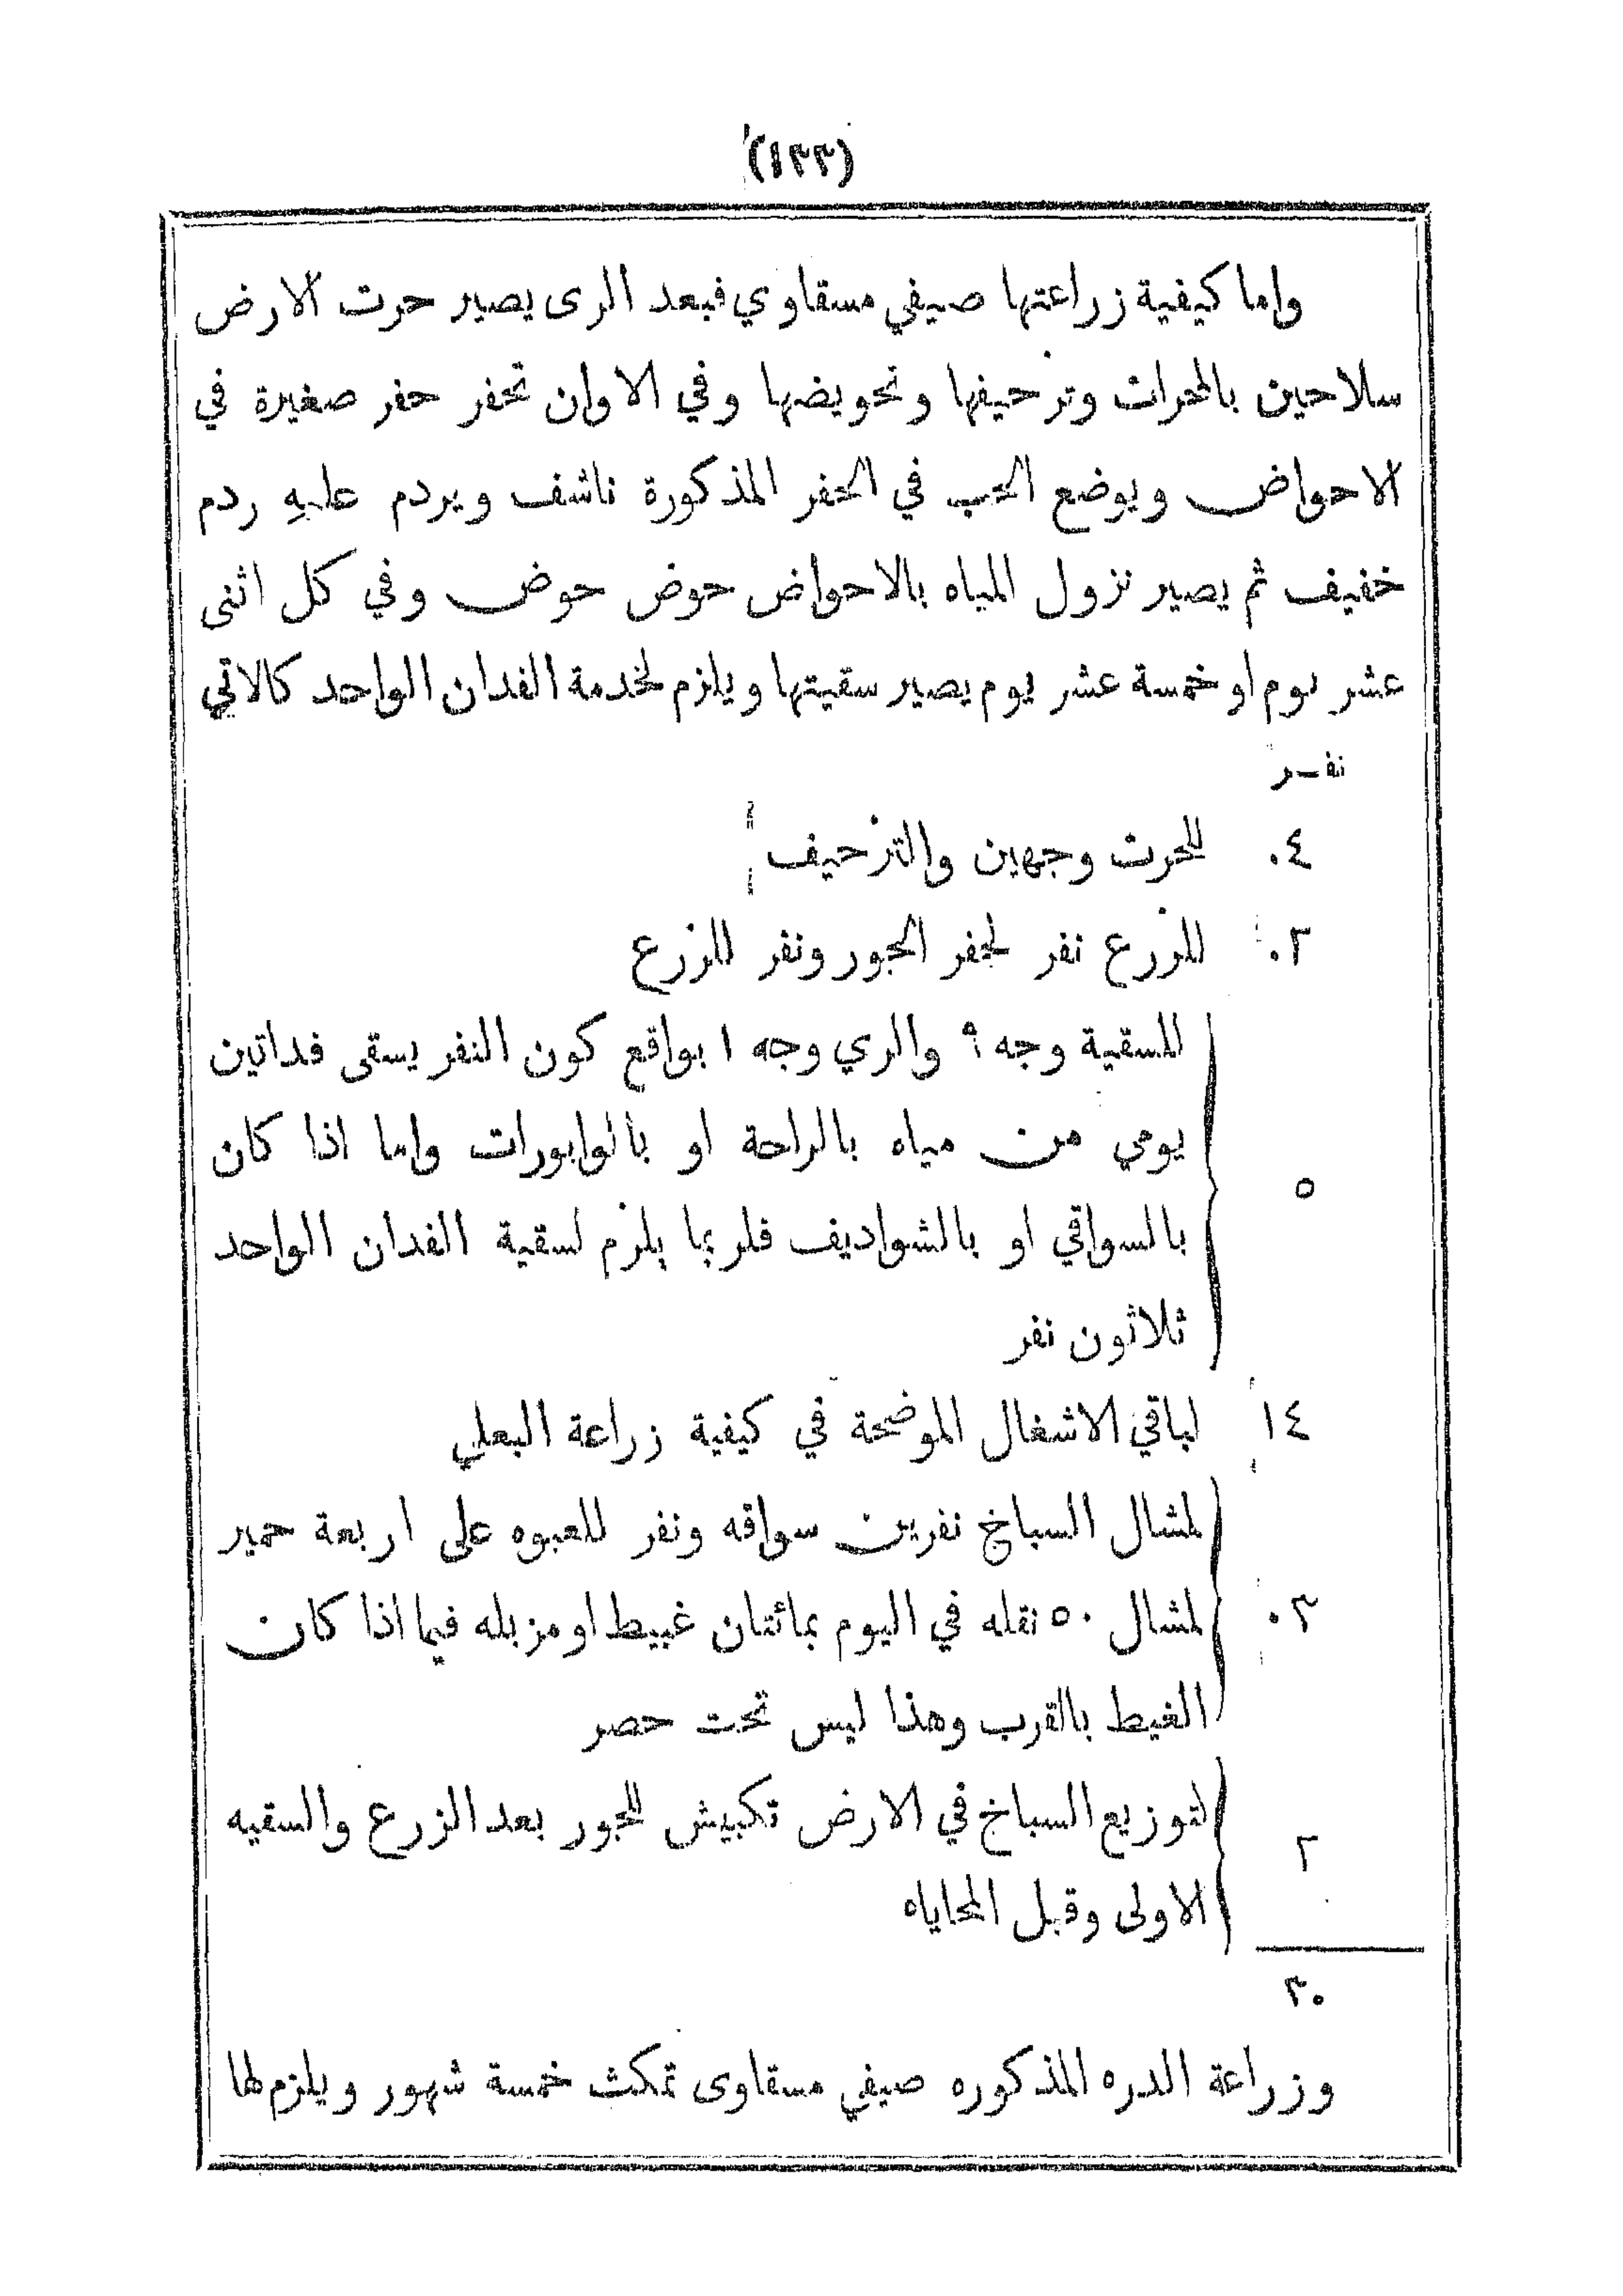 (١٣٣)
واما كيفية زراعتها صيفي مسقاوي فبعد الرى يصير حرث الارض
سلاحين بالمحراث وتزحيفها وتحويضها وفي الاوان تحفر حفر صغيرة في
الاحواض ويوضع الحب في الحفر المذكورة ناشف ويردم عليهِ ردم
خفيف ثم يصير نزول المياه بالاحواض حوض حوض وفي كل اثنى
عشر يوم او خمسة عشر يوم يصير سقيتها ويلزم لخدمة الفدان الواحد كالاتي
نفـر
٠٤ للحرث وجهين والتزحيف
٠٢ للزرع نفر لحفر الجور ونفر للزرع
للسقية وجه ٩ والري وجه ١ بواقع كون النفر يسقى فدانين
يومي من مياه بالراحة او بالوابورات واما اذا كان
٥ بالسواقي او بالشواديف فلربما يلزم لسقية الفدان الواحد
ثلاثون نفر
١٤ لباقي الاشغال الموضحة في كيفية زراعة البعلي
لمشال السباخ نفرين سواقه ونفر للعبوه على اربعة حمير
٠٣ لمشال ٥٠ نقله في اليوم بمائتان غبيط او مزبله فيما اذا كان
الغيط بالقرب وهذا ليس تحت حصر
لتوزيع السباخ في الارض تكبيش للجور بعد الزرع والسقيه
٢ الاولى وقبل المحاياه
٣٠
وزراعة الدره المذكوره صيفي مسقاوى تمكث خمسة شهور ويلزم لها